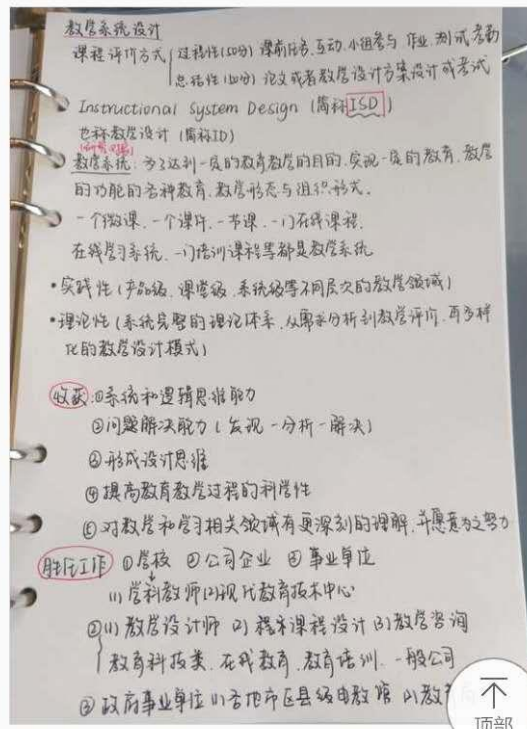 教学系统设计
课程评价方式 过程性(50分) 课前任务、互动、小组参与 作业、测试 考勤
总结性(50分) 论文或者教学设计方案设计或考试
Instructional System Design (简称ISD)
也称教学设计 (简称ID)
教学系统: 为了达到一定的教育教学的目的、实现一定的教育、教学
的功能的各种教育、教学形态与组织形式。
一个微课、一个课件、一节课、一门在线课程、
在线学习系统、一门培训课程等都是教学系统
·实践性(产品级、课堂级、系统级等不同层次的教学领域)
·理论性(系统完整的理论体系,从需求分析到教学评价,再多样
化的教学设计模式)
收获: ①系统和逻辑思维能力
②问题解决能力(发现-分析-解决)
③形成设计思维
④提高教育教学过程的科学性
⑤对教学和学习相关领域有更深刻的理解,并愿意为之努力
胜任工作 ①学校 ②公司企业 ③事业单位
(1)学科教师(2)现代教育技术中心
②(1)教学设计师 (2)程序课程设计 (3)教学咨询
教育科技类、在线教育、教育培训、一般公司
③政府事业单位 (1)各地市区县级电教馆 (2)教育
顶部